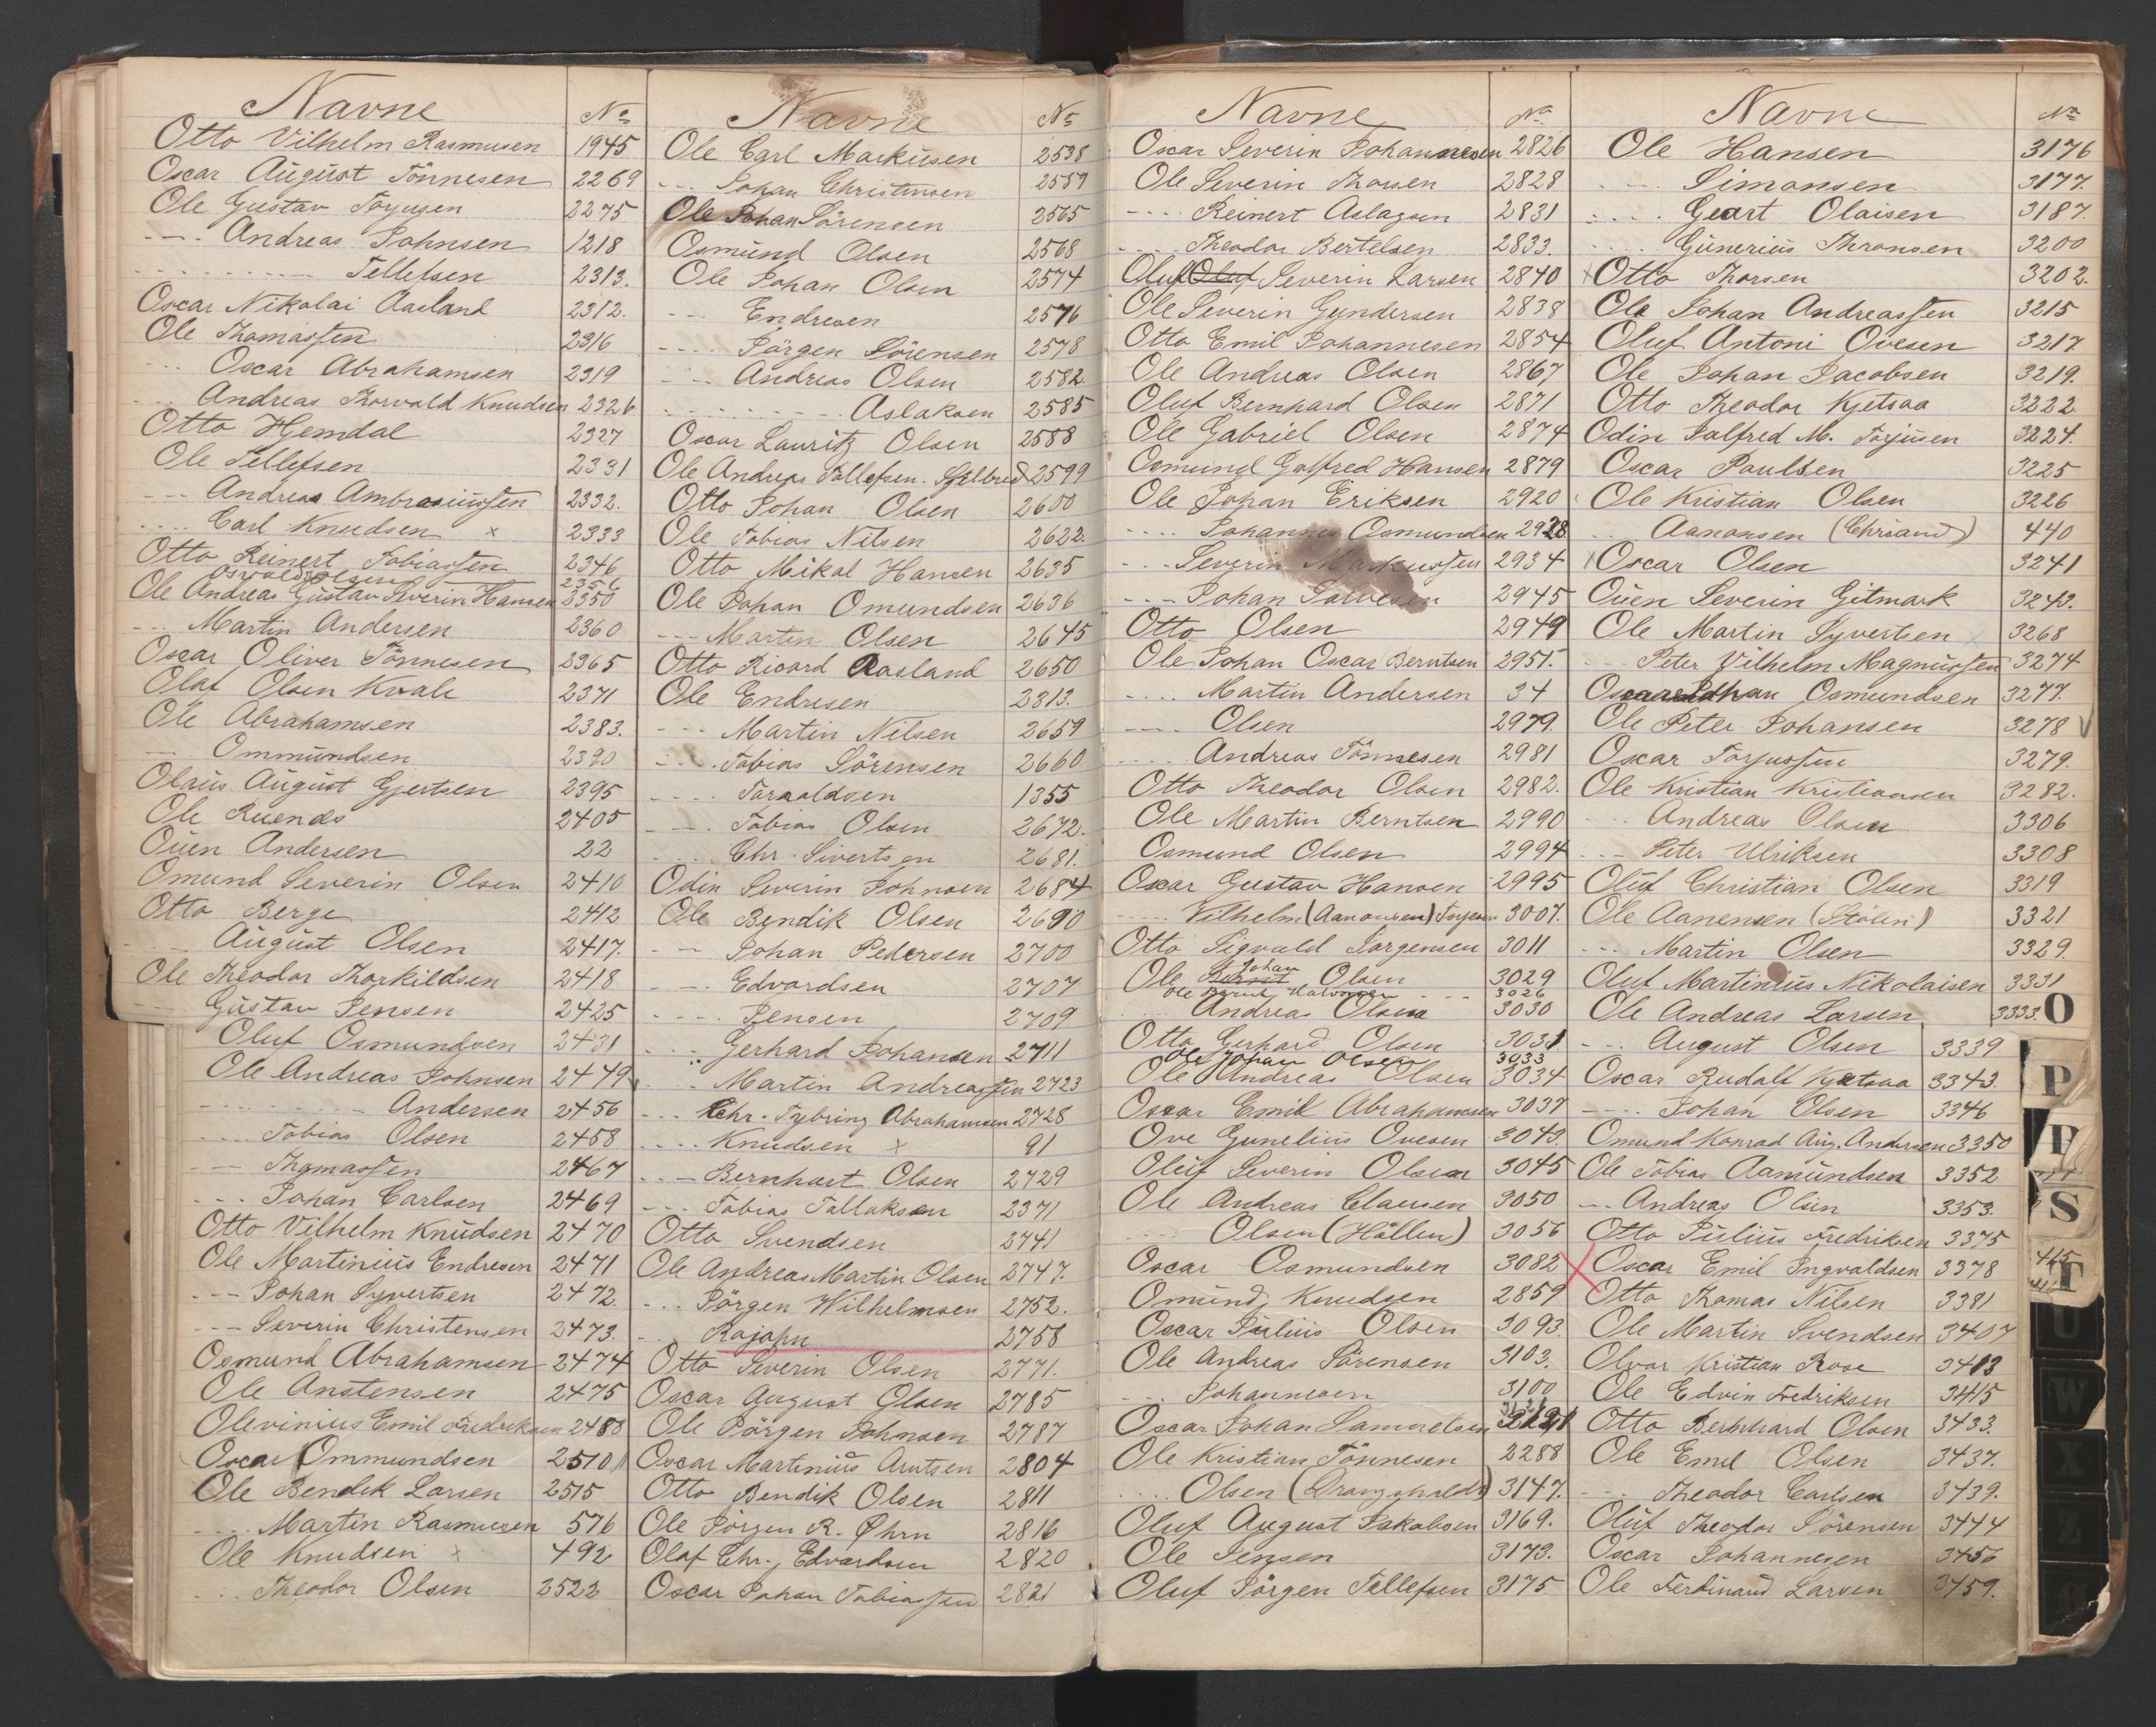 Navne No
Otto Vilhelm Rasmusen 1945
Oscar August Tönnesen 2269
Ole Gustav Torjusen 2275
--- Andreas Johnsen 1218
--- Tellefsen 2313.
Oscar Nikolai Aasland 2312.
Ole Thomassen 2316
--- Oscar Abrahamsen 2319
--- Andreas Thorvald Knudsen 2326
Otto Hjemdal 2327
Ole Tellefsen 2331
--- Andreas Ambrosiussen 2332.
--- Carl Knudsen x 2333
Otto Reinert Tobiassen 2346
Osvald Olsen
Ole Andreas Gustav Severin Hansen 2350
--- Martin Andersen 2360
Oscar Oliver Tönnesen 2365
Olaf Olsen Kvale 2371
Ole Abrahamsen 2383.
--- Ommundsen 2390
Olaus August Gjertsen 2395
Ole Ruenes 2405
Ouen Andersen 22
Omund Severin Olsen 2410
Otto Berge 2412
--- August Olsen 2417.
Ole Theodor Thorkildsen 2418
--- Gustav Jensen 2425
Oluf Osmundsen 2431
Ole Andreas Johnsen 2449
--- Andersen 2456
--- Tobias Olsen 2458
--- Thomassen 2467
--- Johan Carlsen 2469
Otto Vilhelm Knudsen 2470
Ole Martinius Endresen 2471
--- Johan Syvertsen 2472.
--- Severin Christensen 2473.
Osmund Abrahamsen 2474
Ole Anstensen 2475
Olevinius Emil Fredriksen 2488
Oscar Ommundsen 2510
Ole Bendik Larsen 2515
--- Martin Rasmusen 576
Ole Knudsen x 492
--- Theodor Olsen 2522
Navne No
Ole Carl Markusen 2538
--- Johan Christensen 2559
Ole Johan Sörensen 2565
Osmund Olsen 2568
Ole Johan Olsen 2574
--- Endresen 2576
--- Jörgen Sörensen 2578
--- Andreas Olsen 2582.
--- Aslaksen 2585
Oscar Lauritz Olsen 2588
Ole Andreas Tellefsen. 2599
Otto Johan Olsen 2600
Ole Tobias Nilsen 2622.
Otto Mikal Hansen 2635
Ole Johan Omundsen 2636
--- Martin Olsen 2645
Otto Ricard Aasland 2650
Ole Endresen 2313.
--- Martin Nilsen 2659
--- Tobias Sörensen 2660
--- Taraldsen 1355
--- Tobias Olsen 2672.
--- Chr. Sivertsen 2681.
Odin Severin Johnsen 2684
Ole Bendik Olsen 2690
--- Johan Pedersen 2700
--- Edvardsen 2707
--- Jensen 2709
--- Gerhard Johansen 2711
--- Martin Andreassen 2723
--- Chr. Tybring Abrahamsen 2728
--- Knudsen x 91
--- Bernhart Olsen 2729
--- Tobias Tallaksen 2371
Otto Svendsen 2741
Ole Andreas Martin Olsen 2747.
--- Jörgen Wilhelmsen 2752.
--- Rojahn 2758
Otto Severin Olsen 2771.
Oscar August Olsen 2785
Ole Jörgen Johnsen 2787
Oscar Martinius Arntsen 2804
Otto Bendik Olsen 2811
Ole Jörgen R. Øhrn 2816
Olaf Chr. Edvardsen 2820
Oscar Johan Tobiassen 2821
Navne No
Oscar Severin Johannesen 2826
Ole Severin Thorsen 2828
--- Reinert Aslagsen 2831
--- Theodor Bertelsen 2833.
Oluf Oluf Severin Larsen 2840
Ole Severin Gundersen 2838
Otto Emil Johannesen 2854
Ole Andreas Olsen 2867
Oluf Bernhard Olsen 2871
Ole Gabriel Olsen 2874
Osmund Galfred Hansen 2879
Ole Johan Eriksen 2920
--- Johannes Osmundsen 2928
--- Severin Markussen 2934
--- Johan Salvesen 2945
Otto Olsen 2949
Ole Johan Oscar Berntsen 2951.
--- Martin Andersen 34
--- Olsen 2979.
--- Andreas Tönnesen 2981
Otto Theodor Olsen 2982.
Ole Martin Berntsen 2990
Osmund Olsen 2994
Oscar Gustav Hansen 2995
--- Vilhelm (Aanonsen) Torjesen 3007.
Otto Sigvald Jörgensen 3011
Ole Johan Olsen 3029
Ole Bernt Halvorsen --- 3026
--- Andreas Olsen 3030
Otto Gerhard Olsen 3031
Ole Johan Olsen 3033
Ole Andreas Olsen 3034
Oscar Emil Abrahamsen 3037
Ove Gunelius Ovesen 3043.
Oluf Severin Olsen 3045
Ole Andreas Clausen 3050
--- Olsen (Hállen) 3056
Oscar Osmundsen 3082
Omund Knudsen 2859
Oscar Julius Olsen 3093.
Ole Andreas Sörensen 3103.
--- Johannesen 3100
Oscar Johan Samuelsen 3121
Ole Kristian Tönnesen 2288
--- Olsen (Drangsholdt) 3147.
Oluf August Jakobsen 3169.
Ole Jensen 3173.
Oluf Jörgen Tellefsen 3175
Navne No
Ole Hansen 3176
--- Simonsen 3177.
--- Geart Olaisen 3187.
--- Gunerius Thronsen 3200
x Otto Thorsen 3202.
Ole Johan Andreassen 3215
Oluf Antoni Ovesen 3217
Ole Johan Jacobsen 3219.
Otto Theodor Kjetsaa 3222
Odin Salfred M. Torjusen 3224.
Oscar Paulsen 3225
Ole Kristian Olsen 3226
--- Aanonsen (Chrsand) 440
Oscar Olsen 3241
Ouen Severin Gitmark 3243.
Ole Martin Syvertsen x 3268
--- Peter Vilhelm Magnussen 3274
Oscar Johan Osmundsen 3277.
Ole Peter Johansen 3278 √
Oscar Torjussen 3279.
Ole Kristian Kristiansen 3282.
--- Andreas Olsen 3306
--- Peter Ulriksen 3308
Oluf Christian Olsen 3319
Ole Aanensen (Stölen) 3321
--- Martin Olsen 3329.
Oluf Martinius Nikolaisen 3331
Ole Andreas Larsen 3333.
--- August Olsen 3339
Oscar Rudolf Kjetsaa 3343.
--- Johan Olsen 3346
Omund Konrad Aug. Andersen 3350
Ole Tobias Aamundsen 3352
--- Andreas Olsen 3353.
Otto Julius Fredriksen 3375
Oscar Emil Ingvaldsen 3378
Otto Thomas Nilsen 3381
Ole Martin Svendsen 3407
Olvar Kristian Rose 3413
Ole Edvin Fredriksen 3415
Otto Bernhard Olsen 3433.
Ole Emil Olsen 3437.
--- Theodor Carlsen 3439.
Oluf Theodor Sörensen 3444
Oscar Johannesen 3456
Ole Ferdinand Larsen 3459.
O
P
S
T
U
W
X